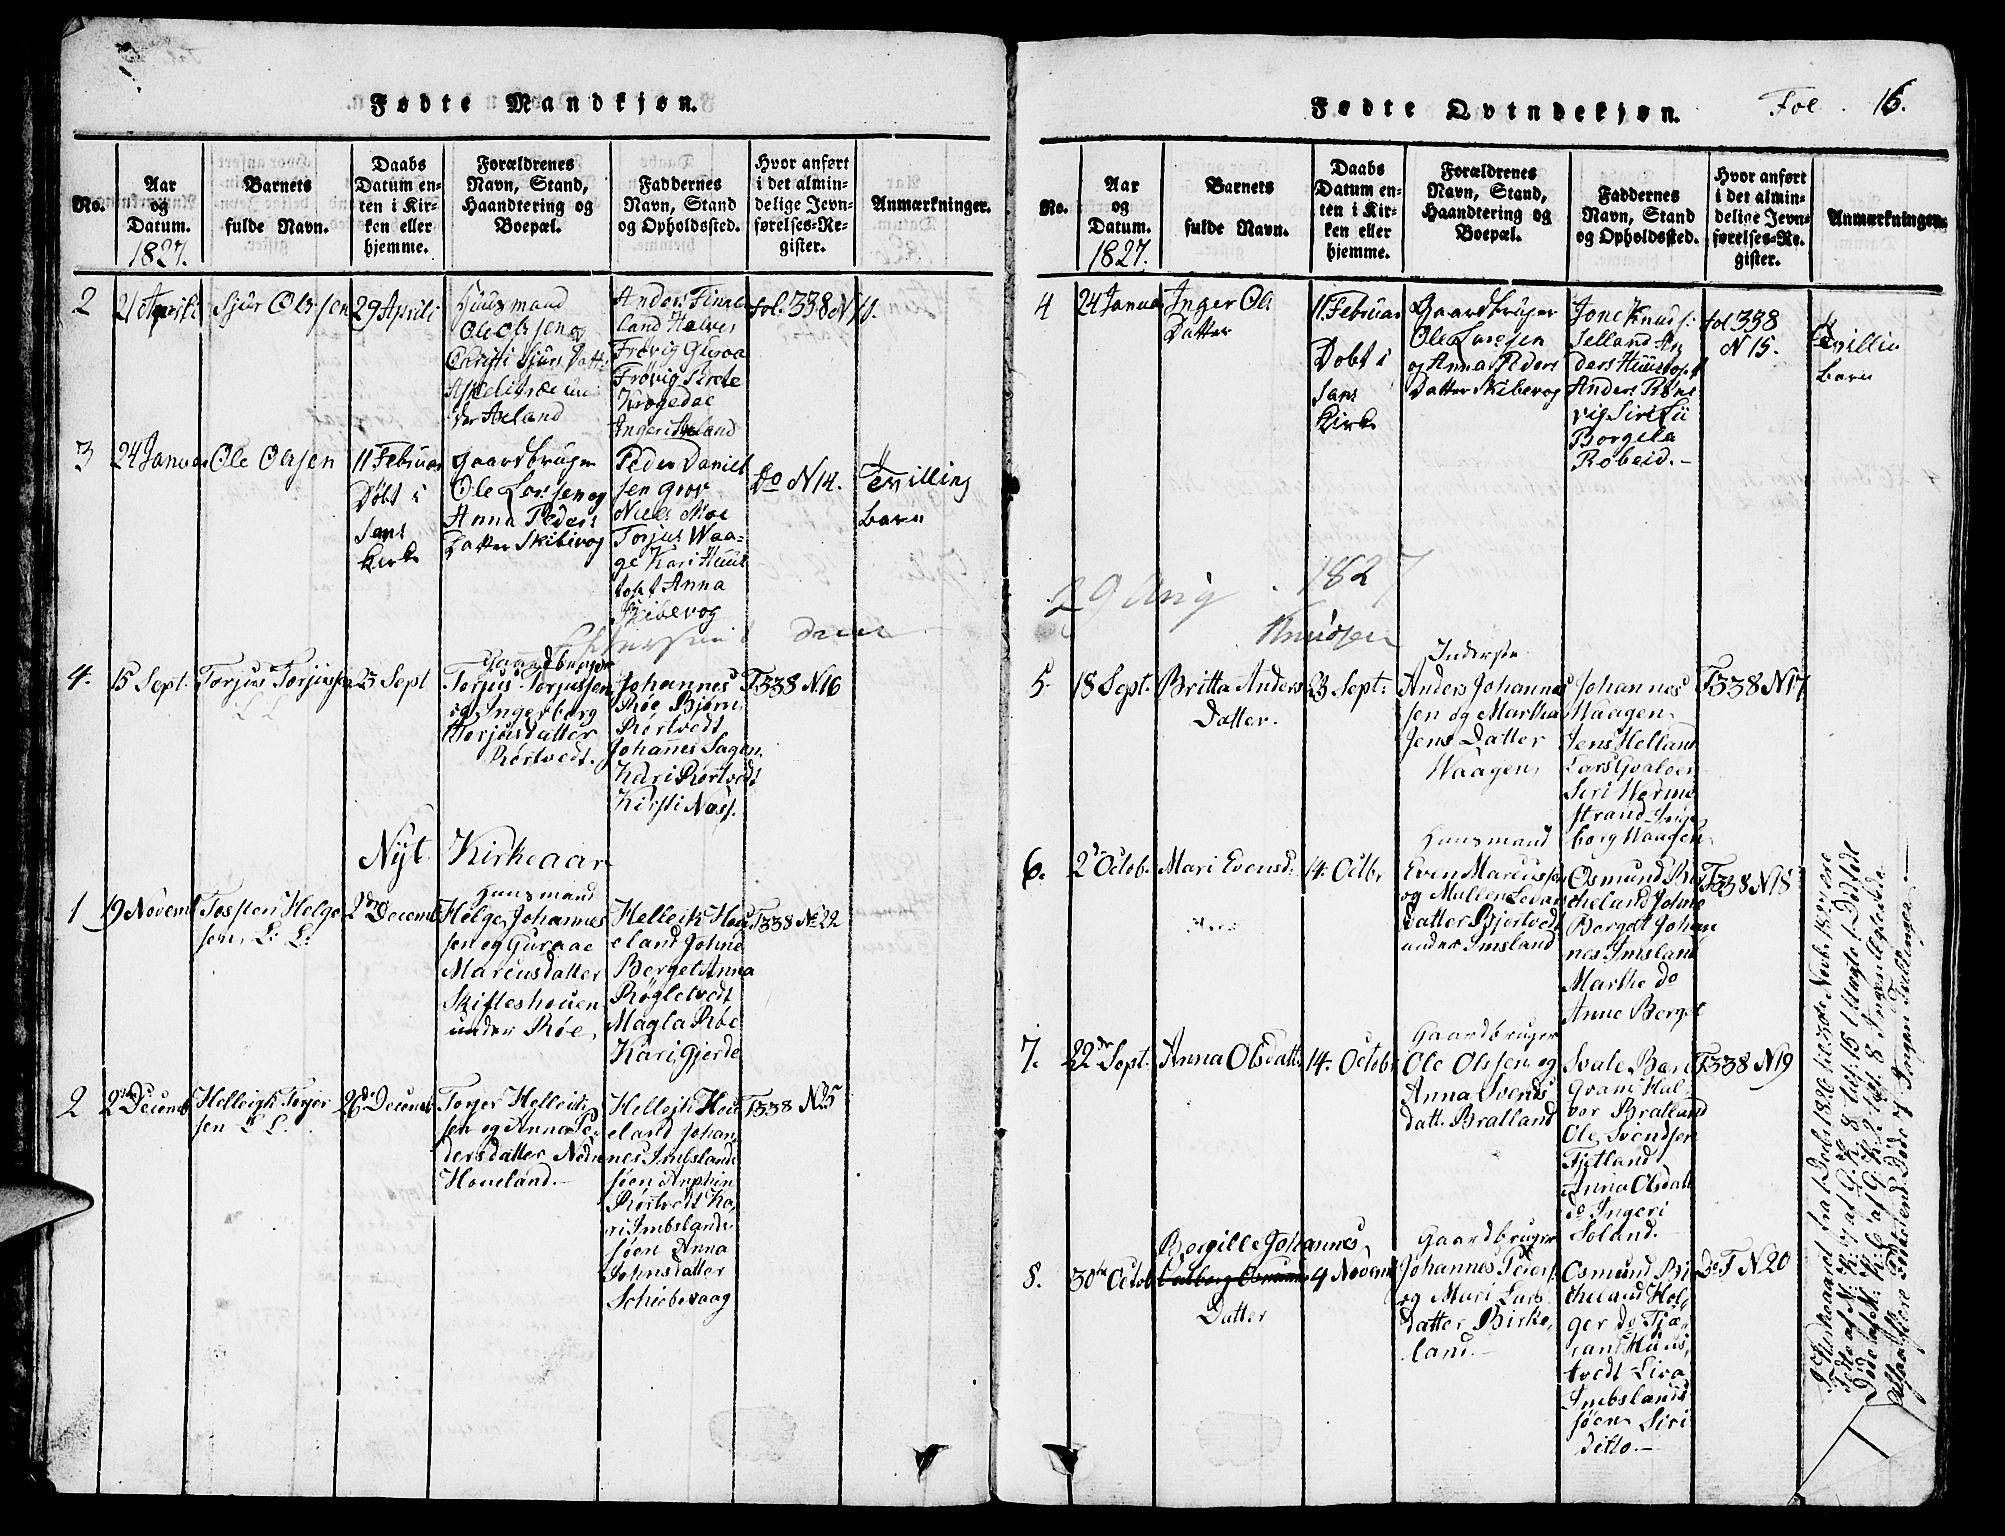 Fødte Mandkjøn.
No.
Aar
og
Datum.
1827.
Barnets
fulde Navn.
Daabs
Datum en-
ten i Kir-
ken eller
hjemme.
Forældrenes
Navn, Stand,
Haandtering og
Boepæl.
Faddernes
Navn, Stand
og Opholdssted.
Hvor anført
i det almin-
delige Jevn-
førelses-Re-
gister.
Anmærkninger.
2
21 Aprili
Sjur Olssen
29 Aprili
Huusmand
Ole Olssen og
Christi Sjurs Datter
Axland
Anders Finne
land Halver
Frøvig Guroa
Frøvig Sirete
Krogedae
Ingeri Axland
fol. 338 N 11.
3
24 Januar
Ole Olssen
11 Februar
Døbt i
Sans
Kirke
Gaardbruger
Ole Larssen og
Anna Peders
Datter Skibevog
Peder Daniel
sen Grov
Niels Moe
Torjus Waa-
ge Kari Huus
toft Anna
Skibevog
Do N 14.
Tvilling
barn
4.
15 Sept.
Torjus Torjussen
23 Sept
Gaardbruger
Torjus Torjussen
og Ingerborg
Torjusdatter
Rørtvedt.
Johannes
Røe Bjørn
Rørtvedt
Johannes Sagen
Kari Rørtvedt
Kirsti Næss.
F 338 N 16
Nyt Kirkeaar
1
19 Novemb
Tosten Helge
sen. L: L:
2den Decemb
Huusmand
Helge Johannes
sen og Guraae
Marcusdatter
Skifteshouen
under Røe.
Helleik Hou
eland Johne
Berget Anna
Røgletvedt
Magla Røe
Kari Gjerde
F 338 No 22
2
2den Decemb
Helleigk Torjer
sen L L.
26de Decemb
Torjer Helleik
sen og Anna Pe-
dersdatter Nedre
Hoveland.-
Helleik Hou
eland Johan
nes Imbsland
søen Anphin
Rørtvedt Ka-
ri Imbslands-
søen Anna
Johnsdatter
Schiebevaag
F 338 N 25
Fødte Qvindekjøn.
Fol. 16.
No.
Aar
og
Datum.
1827.
Barnets
fulde Navn.
Daabs
Datum en-
ten i Kir-
ken eller
hjemme.
Forældrenes
Navn, Stand,
Haandtering og
Boepæl.
Faddernes
Navn, Stand
og Opholdssted.
Hvor anført
i det almin-
delige Jevn-
førelses-Re-
gister.
Anmærkninger.
4
24 Januar
Inger Ols
Datter
11 Februar
Døbt i
Sans
Kirke
Gaardbruger
Ole Larssen
og Anna Peders
Datter Skibevog
Jone Knuds:
Selland An
ders Huustoft
Anders Røns
vig Siri Lii
Borgela
Robeid.-
fol 338
N 15.
Tvilling
barn
29 Aug. 1827
Knudsen
5.
18 Sept.
Britta Anders
Datter.
23 Sept:
Inderste
Anders Johannes
sen og Martha
Jens Datter
Waagen
Johannes
Waagen
Jens Helland
Lars Qvaloen
Siri Werme
strand Inge
borg Waagen
F 338 N 17
6.
2de Octob.
Mari Evensd:
14. Octbr
Huusmand
Even Marcussen
og Mallene Pedars
datter Bjertvedt
under Imsland
Osmund Bir
cheland Johne
Berget Johan
nes Imsland
Marthe do
Anne Berget
F 338 N 18
7.
22de Sept.
Anna Olsdatt:
14. Octobr
Gaardbruger
Ole Olssen og
Anna Svends
datt. Bratland
Svale Bare
Qvam Hal-
vor Bratland
Ole Svendsen
Tjetland
Anna Olsdatt
do Ingeri
Soland.-
F 338 N 19
8.
30te Octob
Borgille Johannes
Datter
4 Novemb
Gaardbruger
Johannes Peders
og Mari Lars
datter Birke-
land.-
Osmund Bi
rcheland Hol-
ger do Tjæ-
rand Huus
tvedt Liva
Imbsland
søen Siri
ditto.-
Do F N 20
I Kirkeaaret fra 1 Decbr 1826 til 30te Novbr 1827 ere
Fødte af M. K. 7 af Q. K. 8 tils: 15 1 Magte 1 Dødfødt
Døde af M. K. 6 af Q. K. 2 tils: 8 Ingen Ugifte døde
Altsaa flere Fødte end Døde 7 Ingen Tvillinger.-